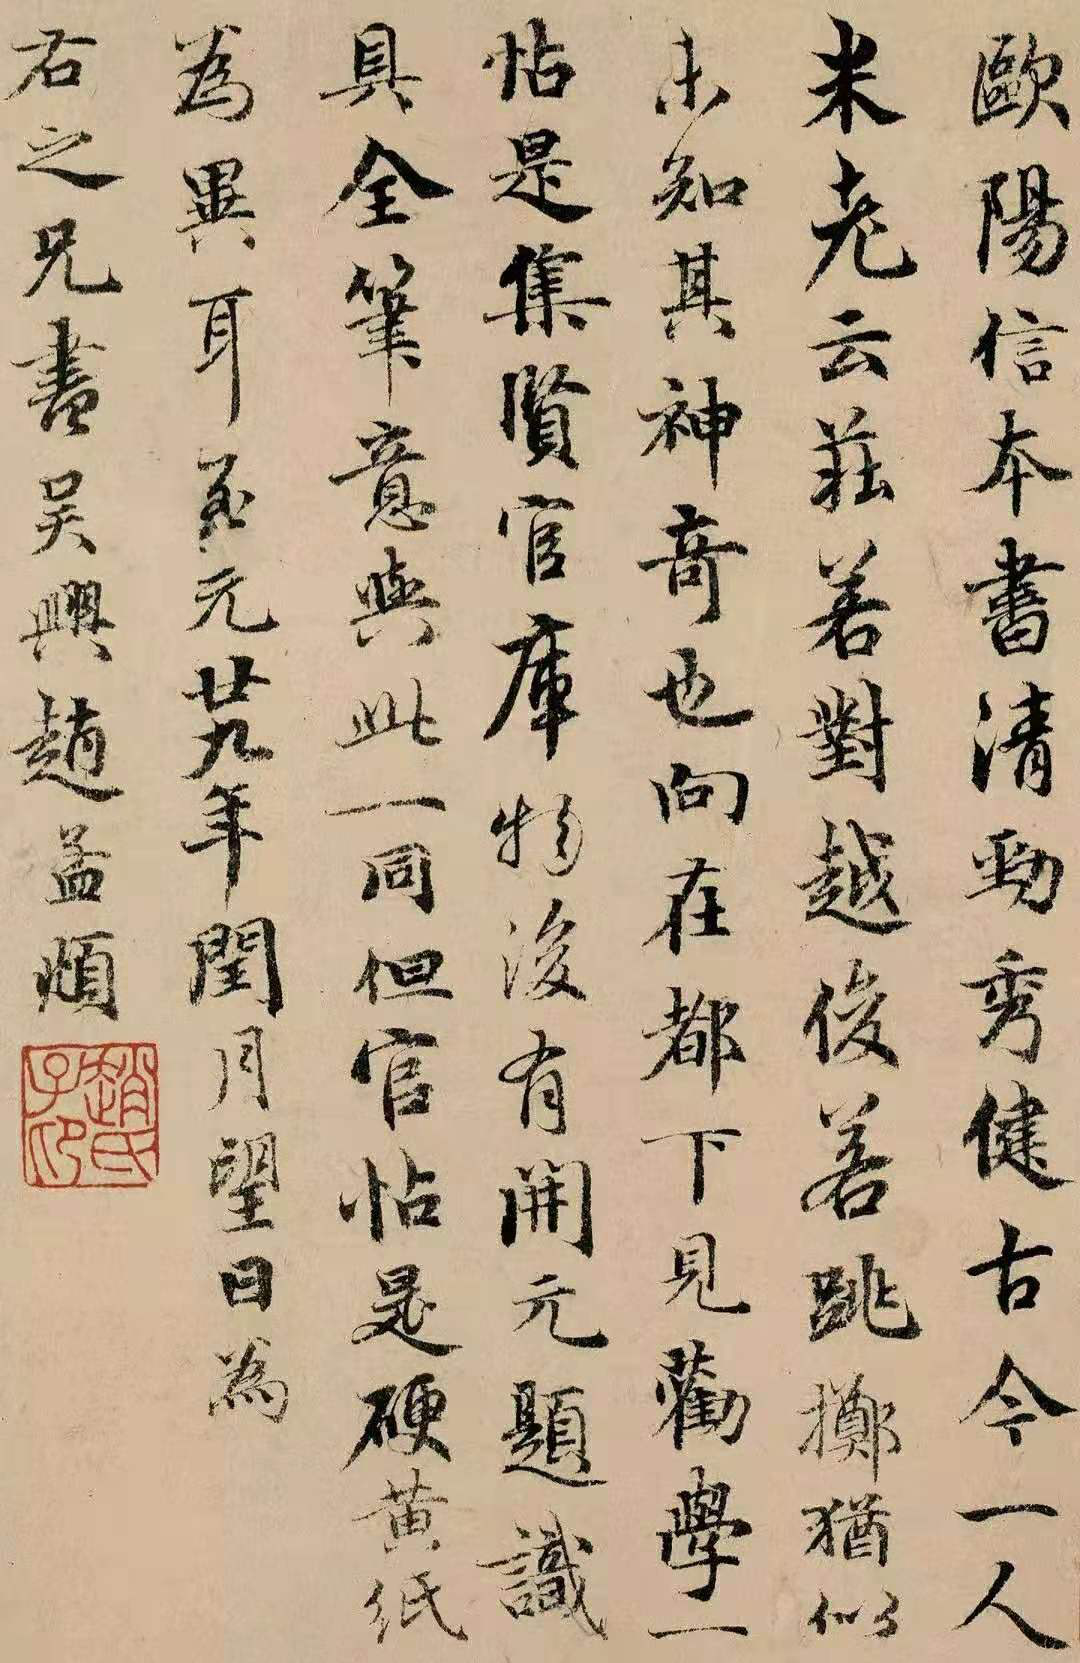 歐陽信本書清勁秀健古今一人
米老云莊若對越俊若跳擲猶似
未知其神奇也向在都下見勸學一
帖是集賢官庫物後有開元題識
具全筆意與此一同但官帖是硬黃紙
為異耳至元廿九年閏月望日為
右之兄書吳興趙孟頫
趙氏子昂